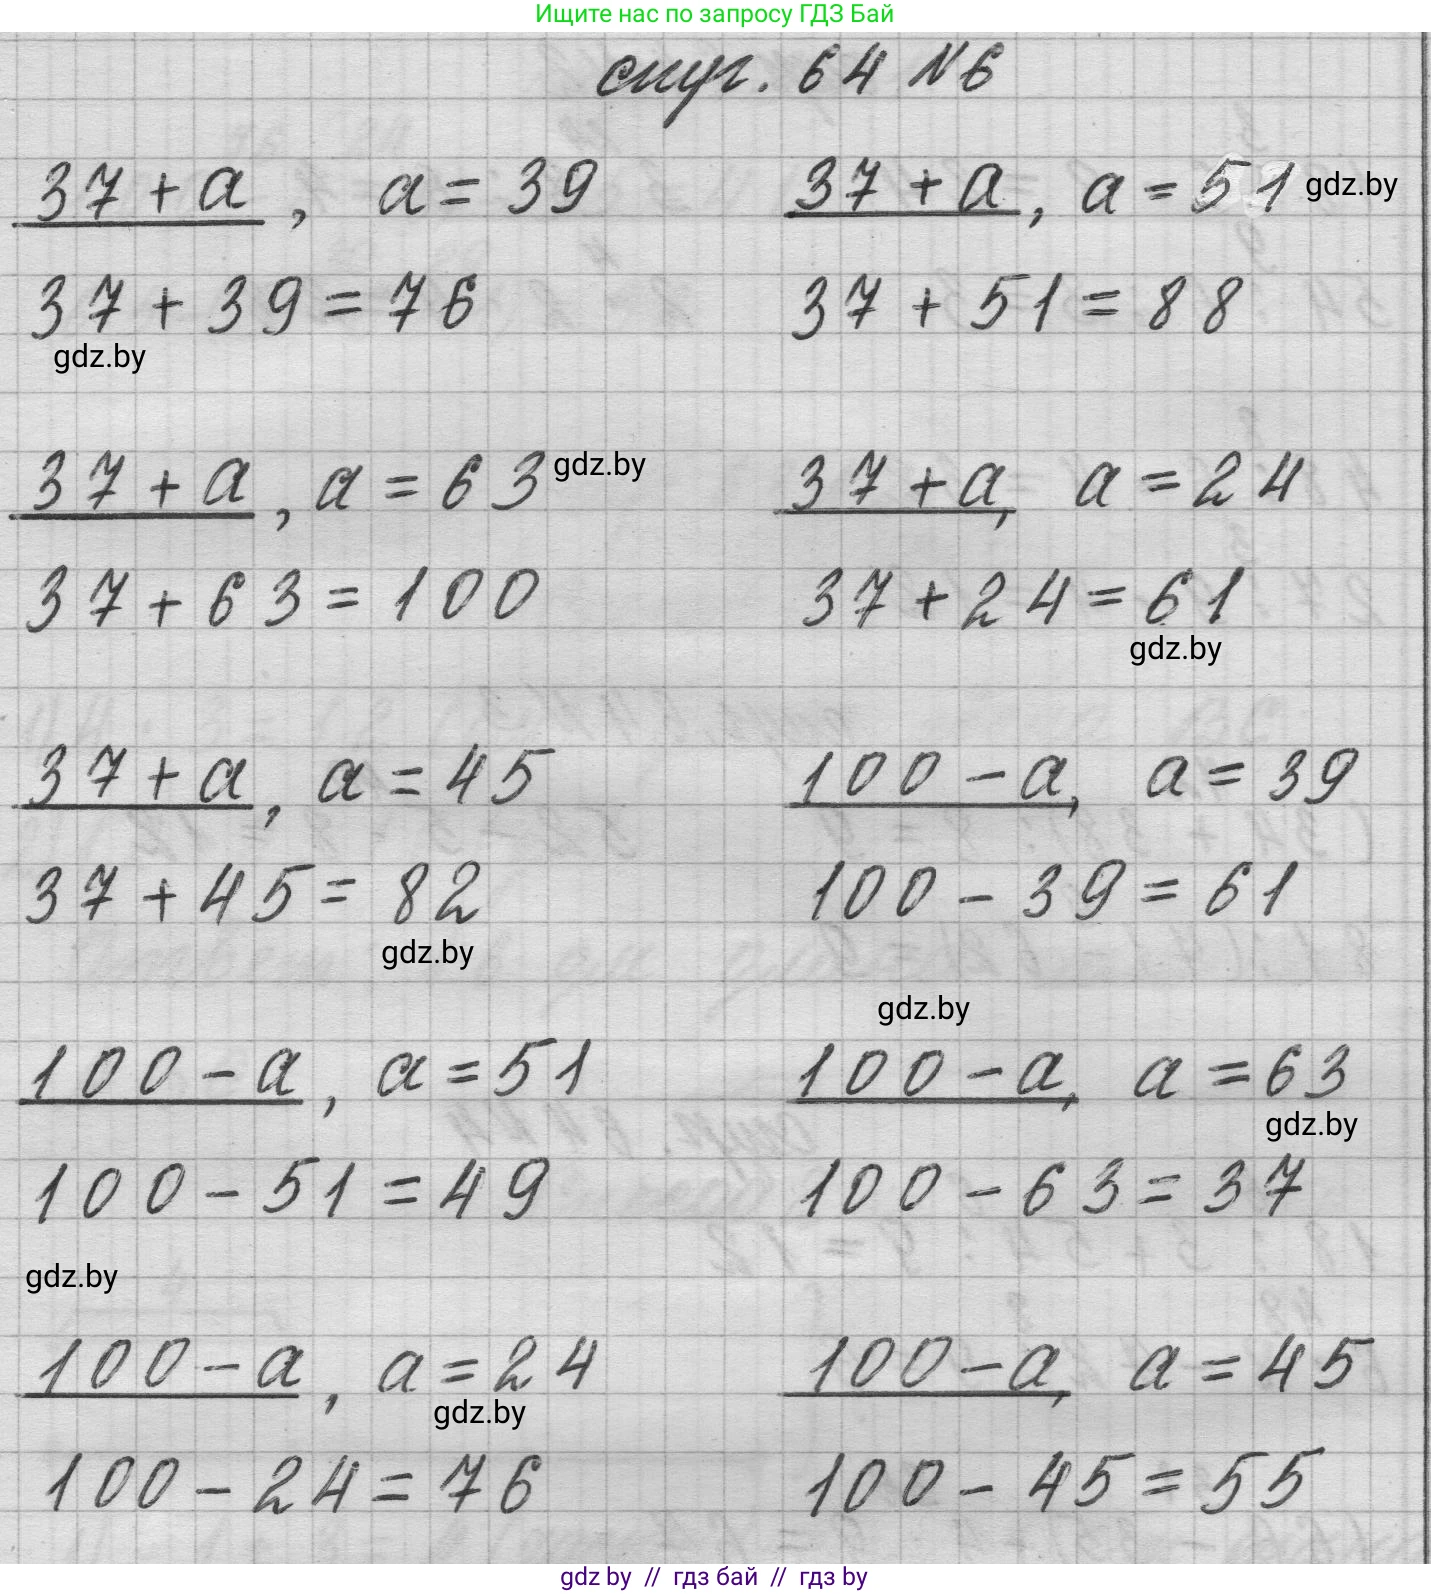 Ищите нас по запросу ГДЗ Бай
стр. 64 №6
37 + a, a = 39
37 + a, a = 51 gdz.by
37 + 39 = 76
37 + 51 = 88
gdz.by
37 + a, a = 63 gdz.by
37 + a, a = 24
37 + 63 = 100
37 + 24 = 61
gdz.by
37 + a, a = 45
100 - a, a = 39
37 + 45 = 82
100 - 39 = 61
gdz.by
gdz.by
100 - a, a = 51
100 - a, a = 63
gdz.by
100 - 51 = 49
100 - 63 = 37
gdz.by
100 - a, a = 24
100 - a, a = 45
gdz.by
100 - 24 = 76
100 - 45 = 55
gdz by // гдз бай // гдз by